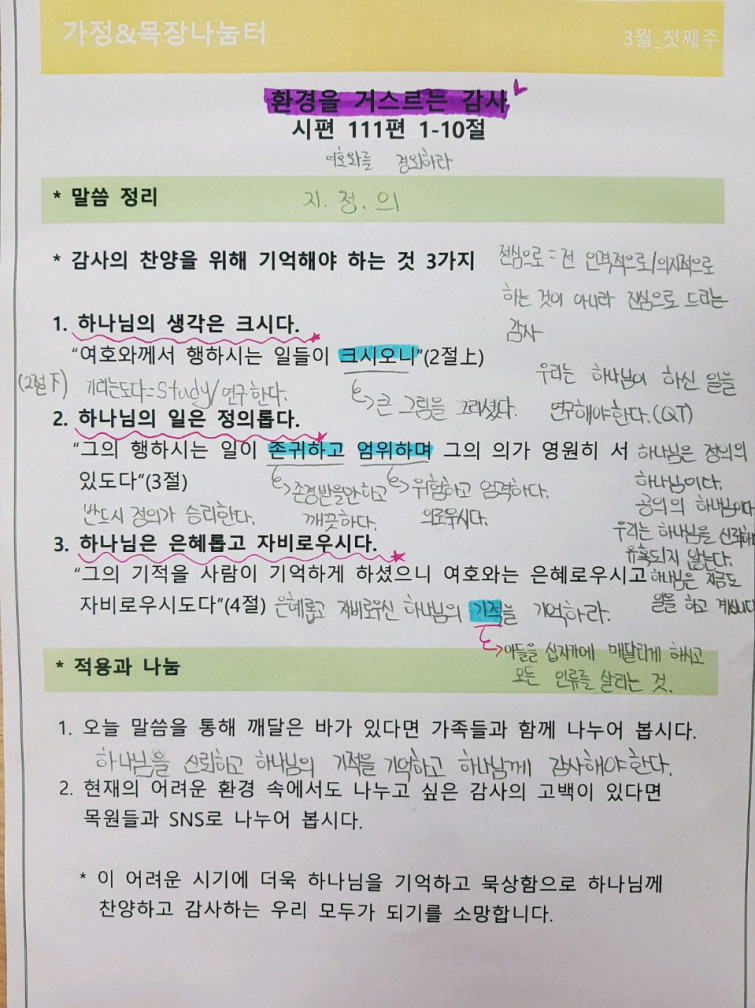 가정&목장나눔터
3월_첫째주
환경을 거스르는 감사
시편 111편 1-10절
여호와를 경외하라
* 말씀 정리
지. 정. 의
* 감사의 찬양을 위해 기억해야 하는 것 3가지
전심으로 = 전 인격적으로/의지적으로
하는 것이 아니라 진심으로 드리는
감사
1. 하나님의 생각은 크시다.
“여호와께서 행하시는 일들이 크시오니”(2절上)
→큰 그림을 그리셨다.
우리는 하나님이 하신 일을
연구해야한다.(QT)
(2절下) 기리는도다=Study/연구한다.
2. 하나님의 일은 정의롭다.
“그의 행하시는 일이 존귀하고 엄위하며 그의 의가 영원히 서
있도다”(3절)
→존경받을만하고
깨끗하다.
→위엄하고 엄격하다.
의로우시다.
반드시 정의가 승리한다.
하나님은 정의의
하나님이다.
공의의 하나님이다
우리는 하나님을 신뢰하
유혹되지 않는다.
하나님은 지금도
일을 하고 계시니다
3. 하나님은 은혜롭고 자비로우시다.
“그의 기적을 사람이 기억하게 하셨으니 여호와는 은혜로우시고
자비로우시도다”(4절) 은혜롭고 자비로우신 하나님의 기적을 기억하라.
→아들을 십자가에 매달리게 하시고
모든 인류를 살리는 것.
* 적용과 나눔
1. 오늘 말씀을 통해 깨달은 바가 있다면 가족들과 함께 나누어 봅시다.
하나님을 신뢰하고 하나님의 기적을 기억하고 하나님께 감사해야한다.
2. 현재의 어려운 환경 속에서도 나누고 싶은 감사의 고백이 있다면
목원들과 SNS로 나누어 봅시다.
* 이 어려운 시기에 더욱 하나님을 기억하고 묵상함으로 하나님께
찬양하고 감사하는 우리 모두가 되기를 소망합니다.